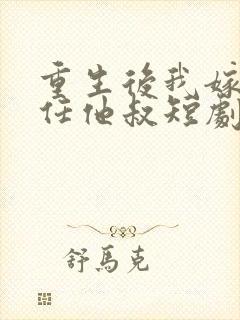 重生後我嫁
任他叔短劇
舒馬克